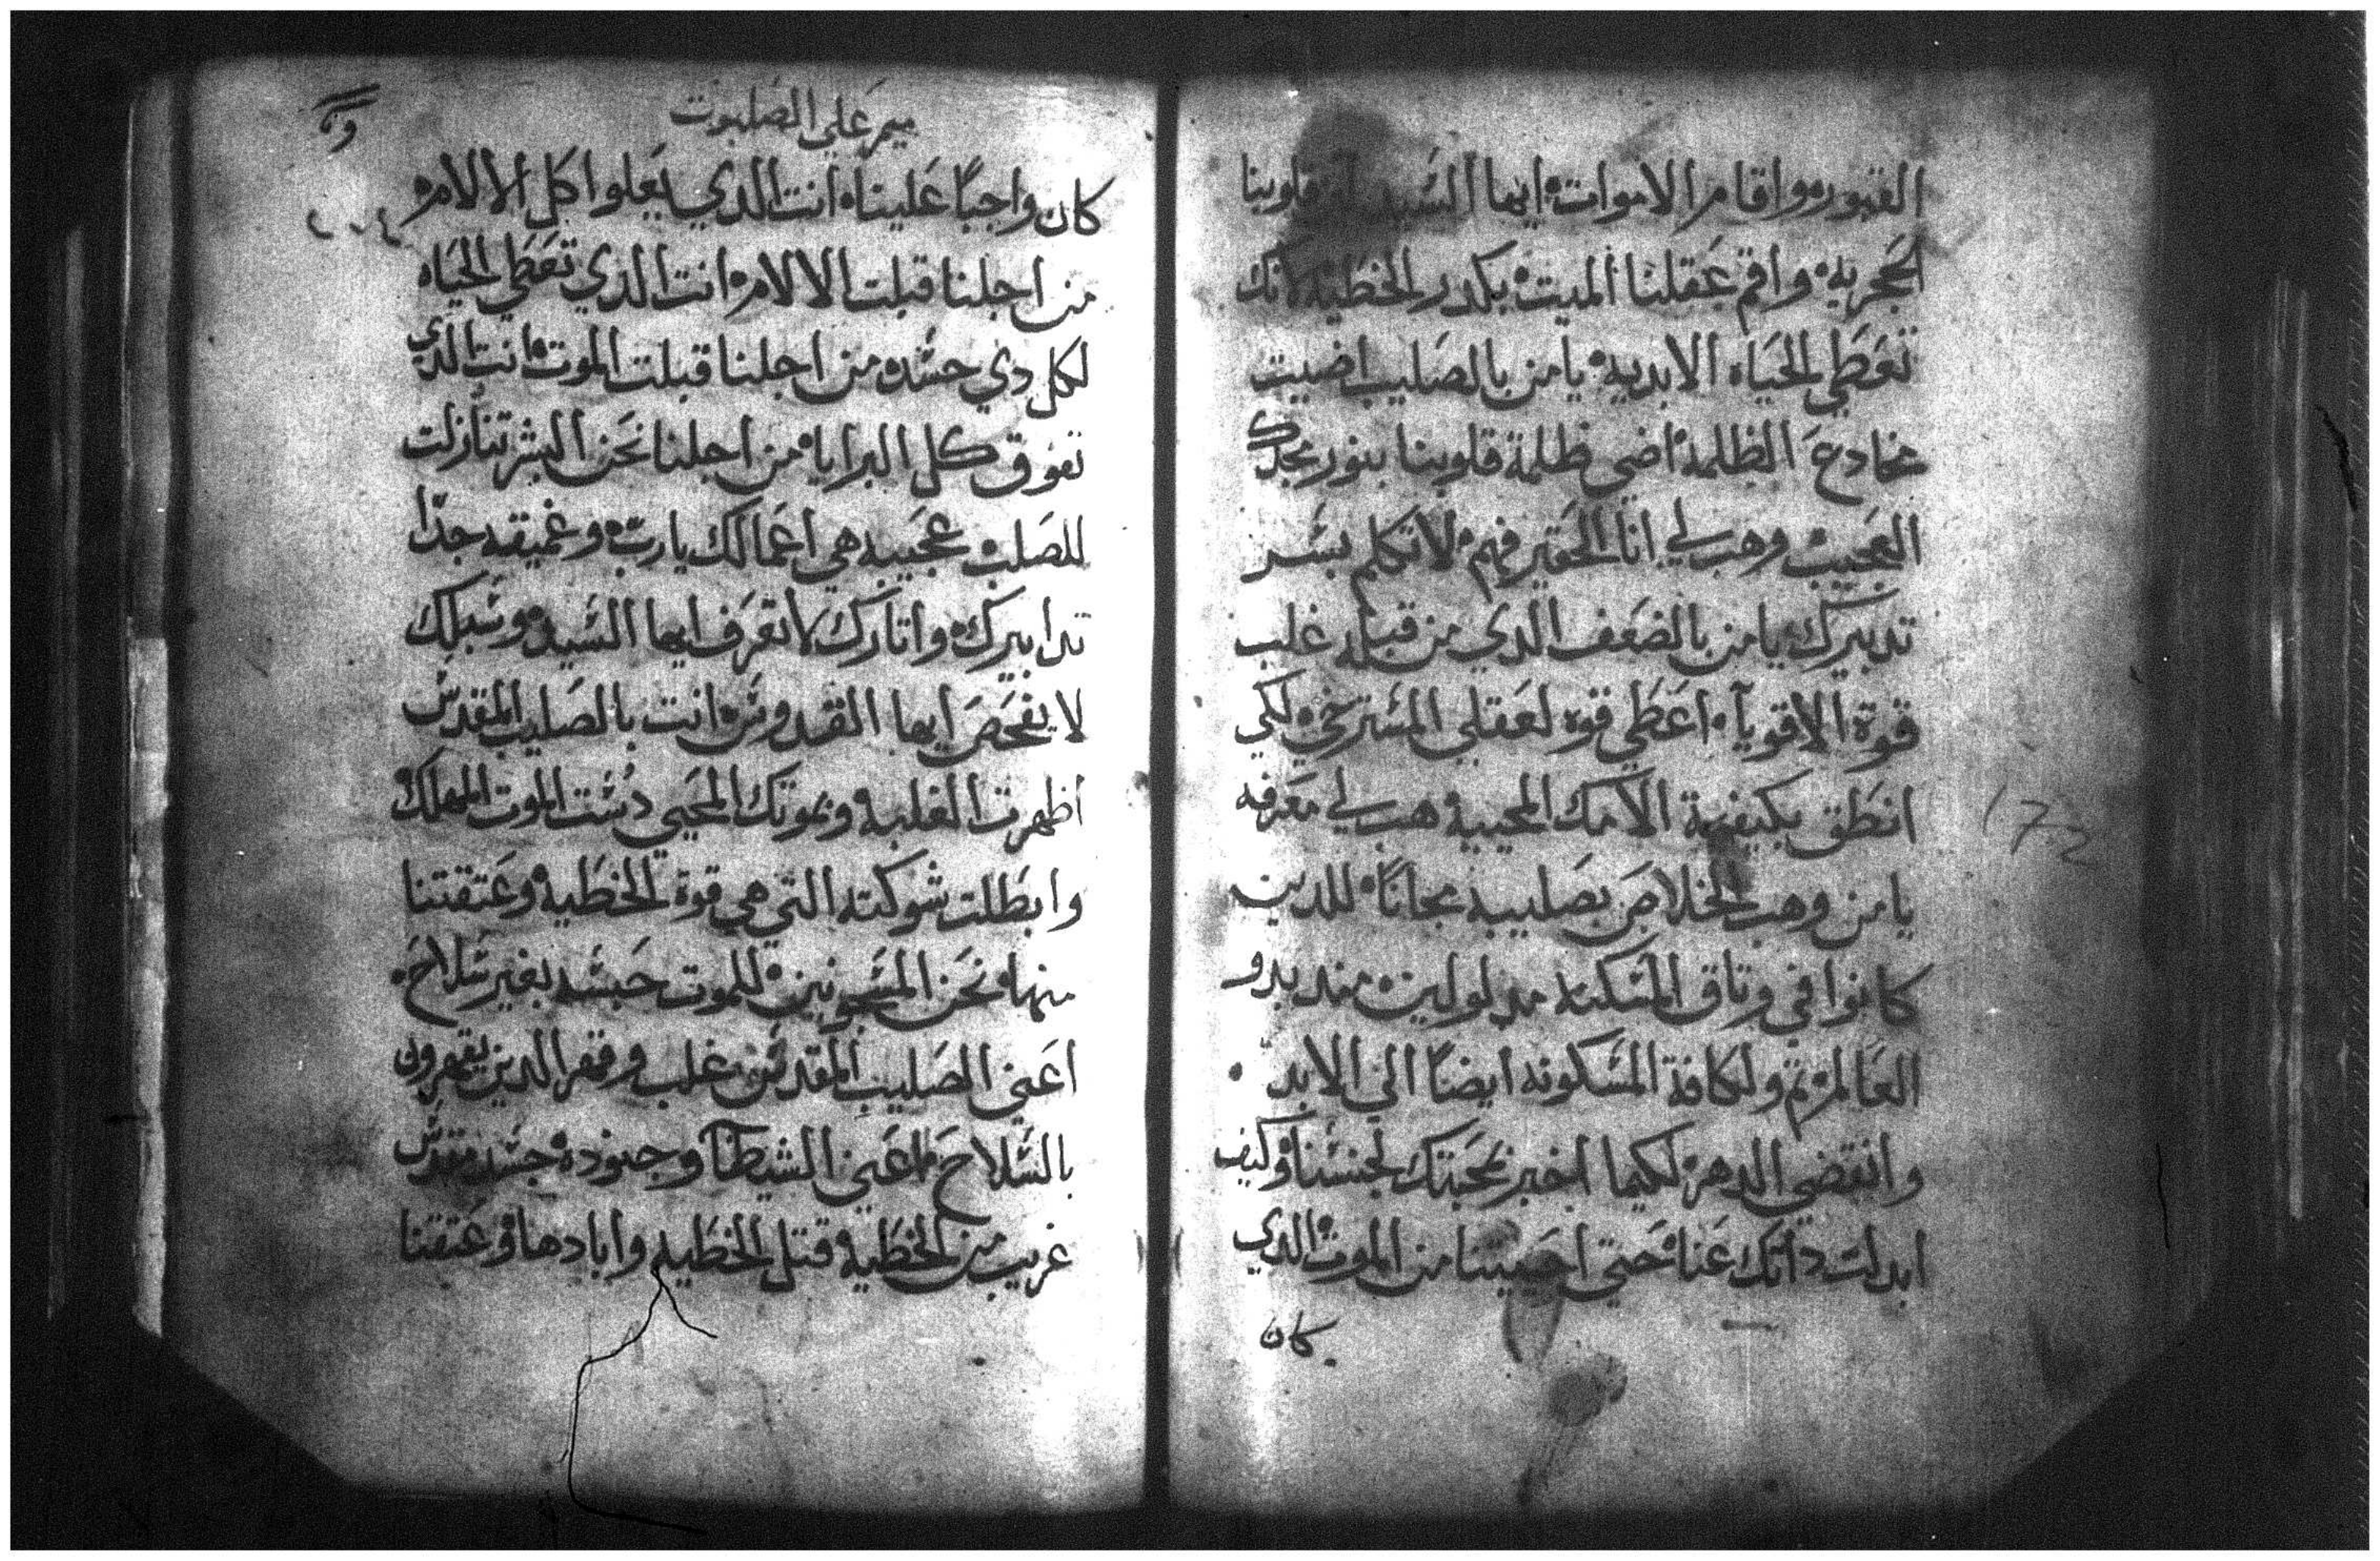 القبور؞ واقام الاموات؞ ايها السيد قلوبنا
الحجريه؞ واقم عقلنا الميت؞ بكدر الخطيه؞ لانك
تعطي الحياه الابديه؞ يا من بالصليب اضيت
مخادع الظلمة؞ اضي ظلمة قلوبنا بنور مجدك
العجيب؞ وهب لي انا الحقير فهم؞ لاتكلم بسر
تدبيرك؞ يا من بالضعف الدي من قبله غلب
قوة الاقويآ؞ اعطي قوه لعقلي المسترخي؞ لكي
انطق بكيفية الامك المحييه؞ هب لي معرفه
يا من وهب الخلاص بصليبه مجاناً؞ للدين
كانوا في وتاق المسكنه مدلولين؞ مند بدو
العالم؞ تم ولكافة المسكونه ايضاً الي الابد؞
وانقضي الدهر؞ لكيما اخبر بمحبتك لجنسنا؞ وكيف
ابدلت داتك عنا؞ حتي احييتنا من الموت؞ الدي
كان
172
ميمر على الصلبوت
كان واجباً علينا؞ انت الدي يعلوا كل الالام؞
من اجلنا قبلت الالام؞ انت الدي تعطي الحياه
لكل دي جسد؞ من اجلنا قبلت الموت؞ انت الدي
تفوق كل البرايا؞ من اجلنا نحن البشر تنازلت
للصلب؞ عجيبه هي اعمالك يارب؞ وغميقه جدّا
تدابيرك؞ واتارك لا تعرف ايها السيد؞ وسبلك
لا يفحص ايها القدوس؞ انت بالصليب المقدس
اظهرت الغلبه؞ وبموتك المحيي دست الموت المهلك
وابطلت شوكته التي هي قوة الخطيه؞ وعتقتنا
منها؞ نحن المسجونين؞ للموت جسد بغير سلاح؞
اعني الصليب المقدس؞ غلب وقهر الدين يقهرون
بالسلاح؞ اعني الشيطان وجنوده؞ جسد مقدس
غريب من الخطيه؞ قتل الخطيه وابادها؞ وعتقنا